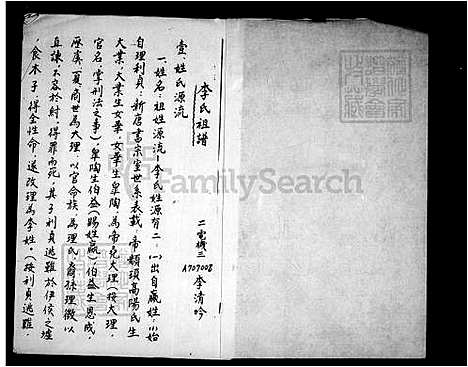 李氏祖譜
二電機三
A707008
李清吟
壹姓氏源流
一、姓名：祖姓源流—李氏姓源有二、㈠出自嬴姓、小始
自理利貞：新唐書宗室世系表載、帝顓頊高陽氏生
大業、大業生女華、女華生皐陶、為帝堯大理（按大理、
官名、掌刑法之事）皐陶生伯益（賜姓嬴）伯益生恩成、
歷虞、夏、商世為大理、以官命族為理氏、裔孫理徵以
直諫、不容於紂、得罪而死、其子利貞逃難於伊侯之墟
食木子、得全性命、遂改理為李姓。（按利貞逃難
FamilySearch